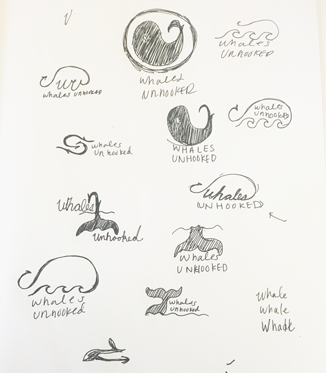 whales
UNHOOKED
whales
UNHOOKED
whales unhooked
whales
unhooked
whales
unhooked
WHALES
UNHOOKED
whales
UNHOOKED
whales
unhooked
whales
UNHOOKED
whales
unhooked
whales
unhooked
whale
whale